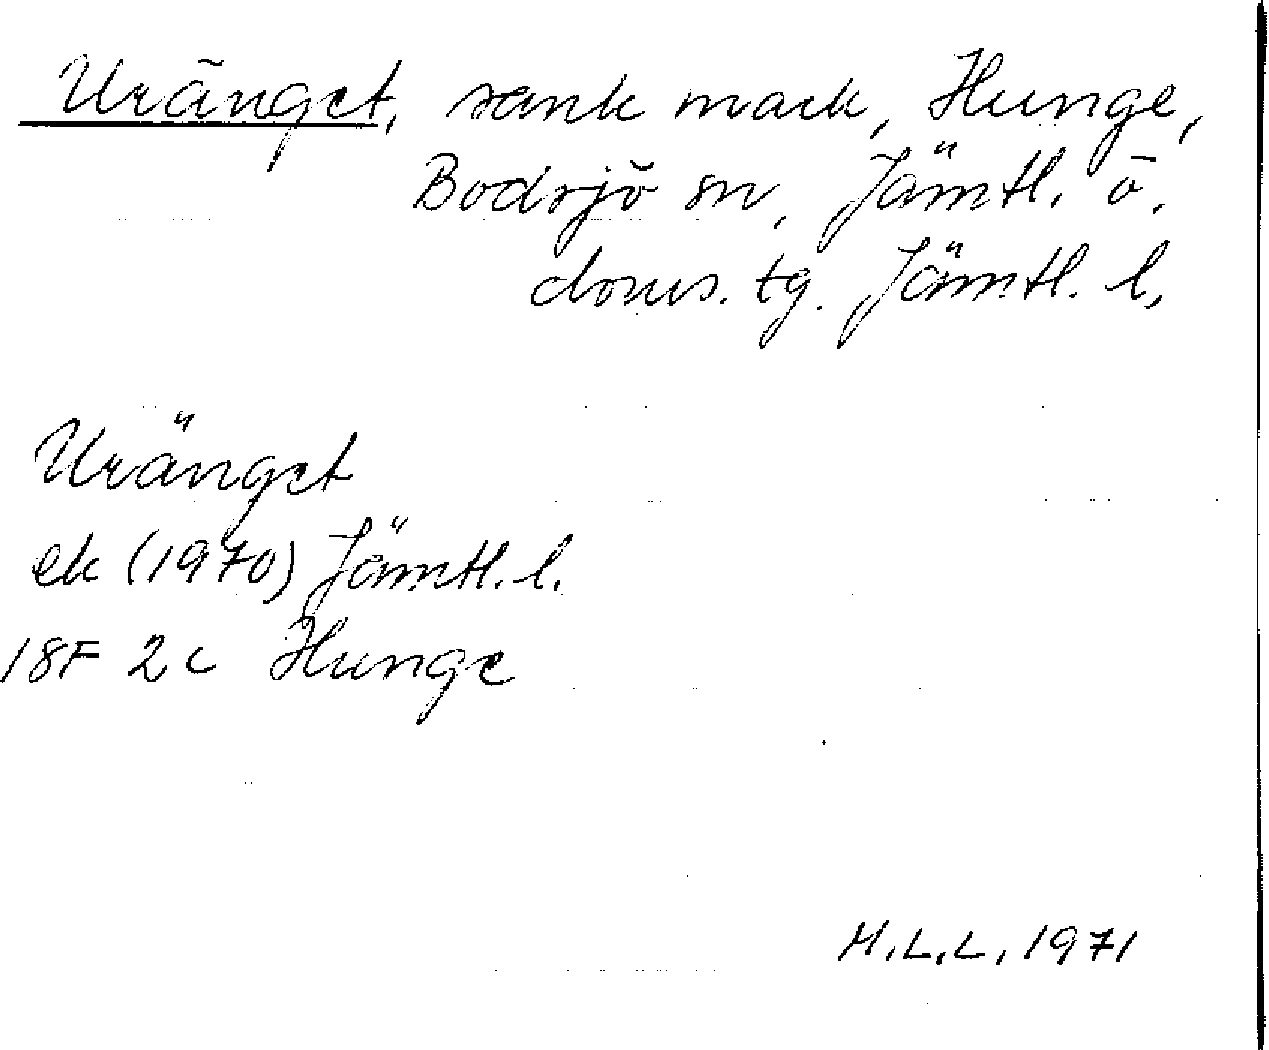 Uränget, sank mark, Hunge,
Bodsjö sn, Jämtl. ö.
doms. tg. Jämtl. l.
Uränget
ek (1970) Jämtl. l.
18F 2c Hunge
M.L.L. 1971